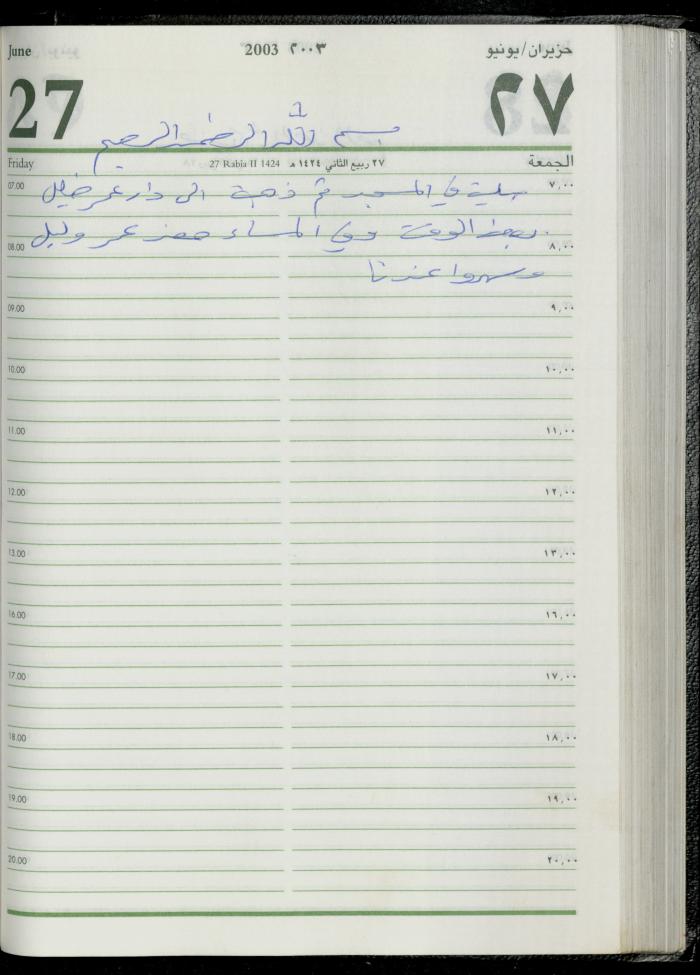 June 2003 ٢٠٠٣ حزيران/يونيو
27 ٢٧
بسم الله الرحمن الرحيم
Friday 27 Rabia II 1424 ٢٧ ربيع الثاني ١٤٢٤ هـ الجمعة
07.00 صلية في المسجد ثم ذهبة الى دار عمر خليل ٧,٠٠
بعض الوقت وفي المساء حضر عمر
08.00 ٨,٠٠
وسهروا عندنا
09.00 ٩,٠٠
10.00 ١٠,٠٠
11.00 ١١,٠٠
12.00 ١٢,٠٠
13.00 ١٣,٠٠
16.00 ١٦,٠٠
17.00 ١٧,٠٠
18.00 ١٨,٠٠
19.00 ١٩,٠٠
20.00 ٢٠,٠٠